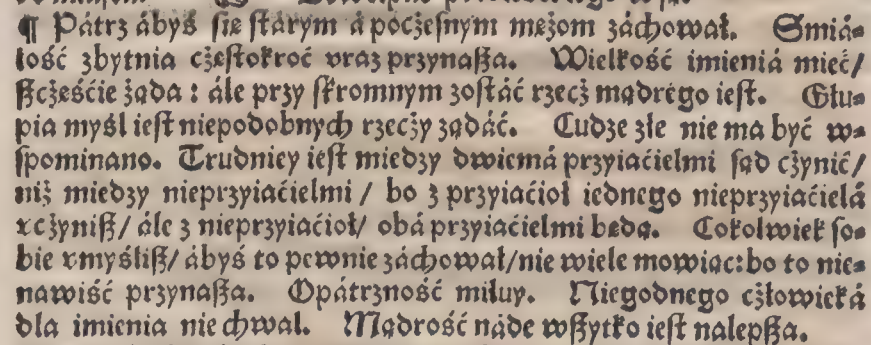 ¶ Pátrz ábyś ſie ſtárym á pocżeſnym mężom záchował. Smiá⸗
łość zbytnia cżęſtokroć vraz przynaſza. Wielkość imienia mieć/
ſzcżęśćie żąda : ále przy ſkromnym zoſtáć rzecż mądrego ieſt. Głu⸗
pia myśl ieſt niepodobnych rzecży żądáć. Cudze złe nie ma być w⸗
ſpominano. Trudniey ieſt miedzy dwiemá przyiaćielmi ſąd cżynić/
niż miedzy nieprzyiaćielmi / bo z przyiaćioł iednego nieprzyiaćielá
vcżyniſz/ ále z nieprzyiaćioł/ obá przyiaćielmi będą. Cokolwiek ſo⸗
bie vmyśliſz/ ábyś to pewnie záchował/nie wiele mowiąc:bo to nie⸗
nawiść przynaſza. Opátrzność miłuy. Niegodnego cżłowieká
dla imienia nie chwal. Mądrość náde wſzytko ieſt nalepſza.